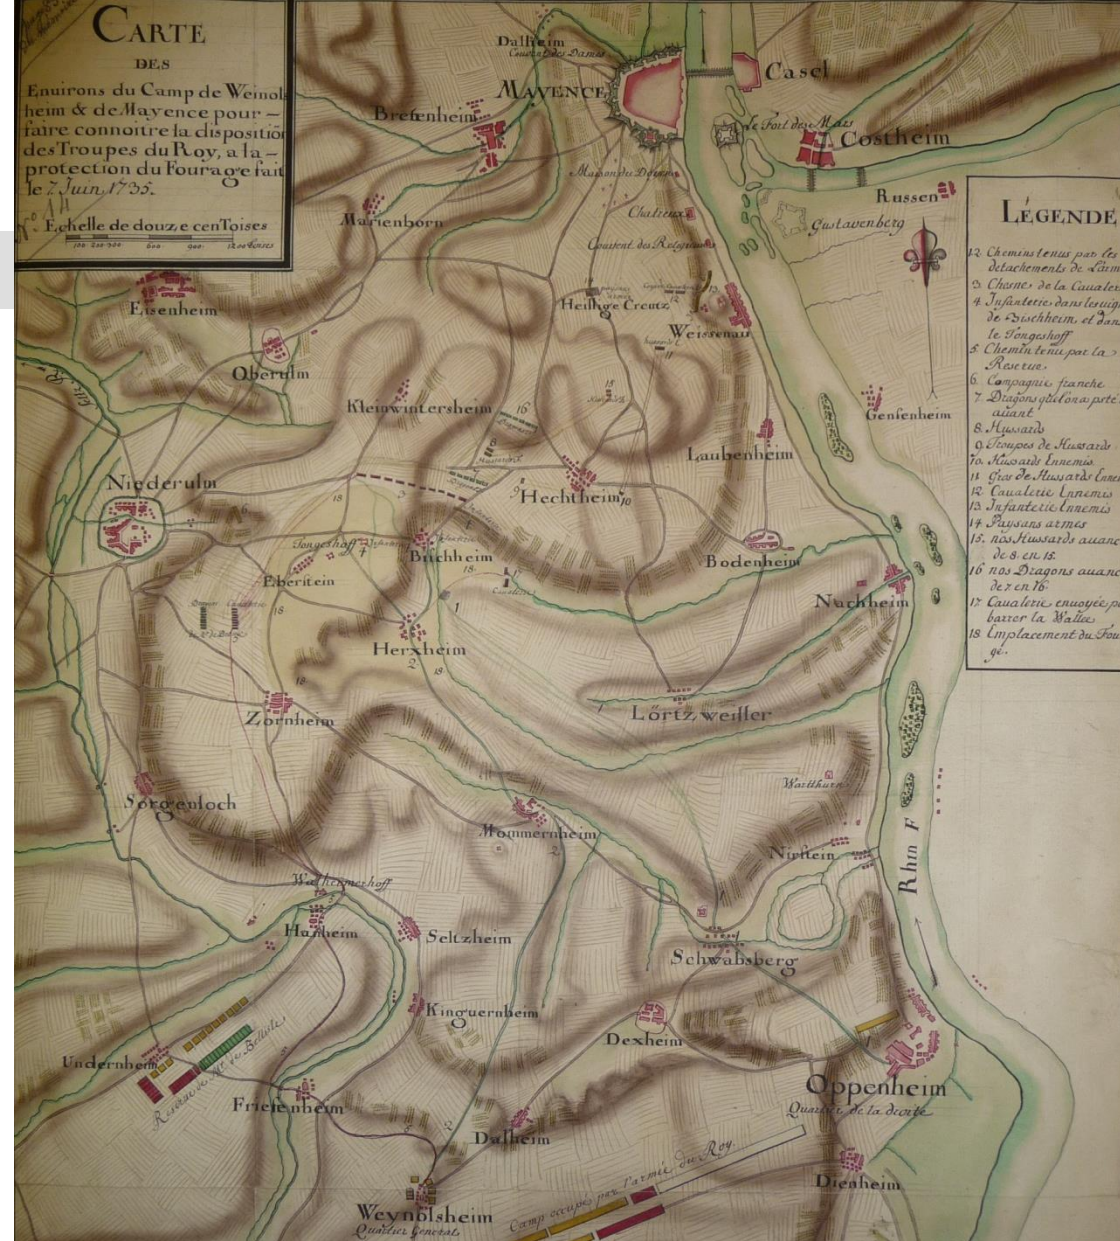 CARTE
DES
Environs du Camp de Weinols
heim & de Mayence pour –
faire connoitre la dispositiō
des Troupes du Roy, a la –
protection du Fourage fait
le 7 Juin 1735.
No. 14
Echelle de douze cen Toises
100 200 300 600 900 1200 toises
Dalheim
Couvent des Dames
MAYENCE
Casel
Bretenheim
le Fort de Mars
Costheim
Maison du Doien
Marienborn
Chatreux
Russen
Gustavenberg
Couvent des Religieux
Eisenheim
Heilige Creutz
Weissenau
Oberulm
Kleinwintersheim
Gensenheim
Laubenheim
Niederulm
Hechtheim
Bischheim
Tongeshoff
Eberstein
Bodenheim
Nachheim
Herxheim
Lörtzweiller
Zornheim
Wartthurn
Sorgenloch
Mommernheim
Nirstein
Rhin F
Wathermerhoff
Hanheim
Seltzheim
Schwabsberg
Kinguernheim
Dexheim
Undernheim
Reserve de Mr. de Belisle
Friesenheim
Oppenheim
Quartier de la droite
Dalheim
Dienheim
Weynolsheim
Quartier General
Camp occupé par l'armée du Roy
LÉGENDE
1.2 Chemins tenus par les
detachements de L'arm
3 Chesne de la Caualer
4 Infanterie dans les vig
de Bischheim et dan
le Tongeshoff
5 Chemin tenu par la
Reserue
6 Compagnie franche
7 Dragons qu'lon a porté
auant
8 Hussards
9 Troupes de Hussards
10 Hussards Ennemis
11 Gros de Hussards Enne
12 Caualerie Ennemis
13 Infanterie Ennemis
14 Paysans armés
15 nos Hussards auanc
de 8 en 15.
16 nos Dragons auanc
de 7 en 16
17 Caualerie enuoyée po
barrer la Wallée
18 Emplacement du Fou
ge.